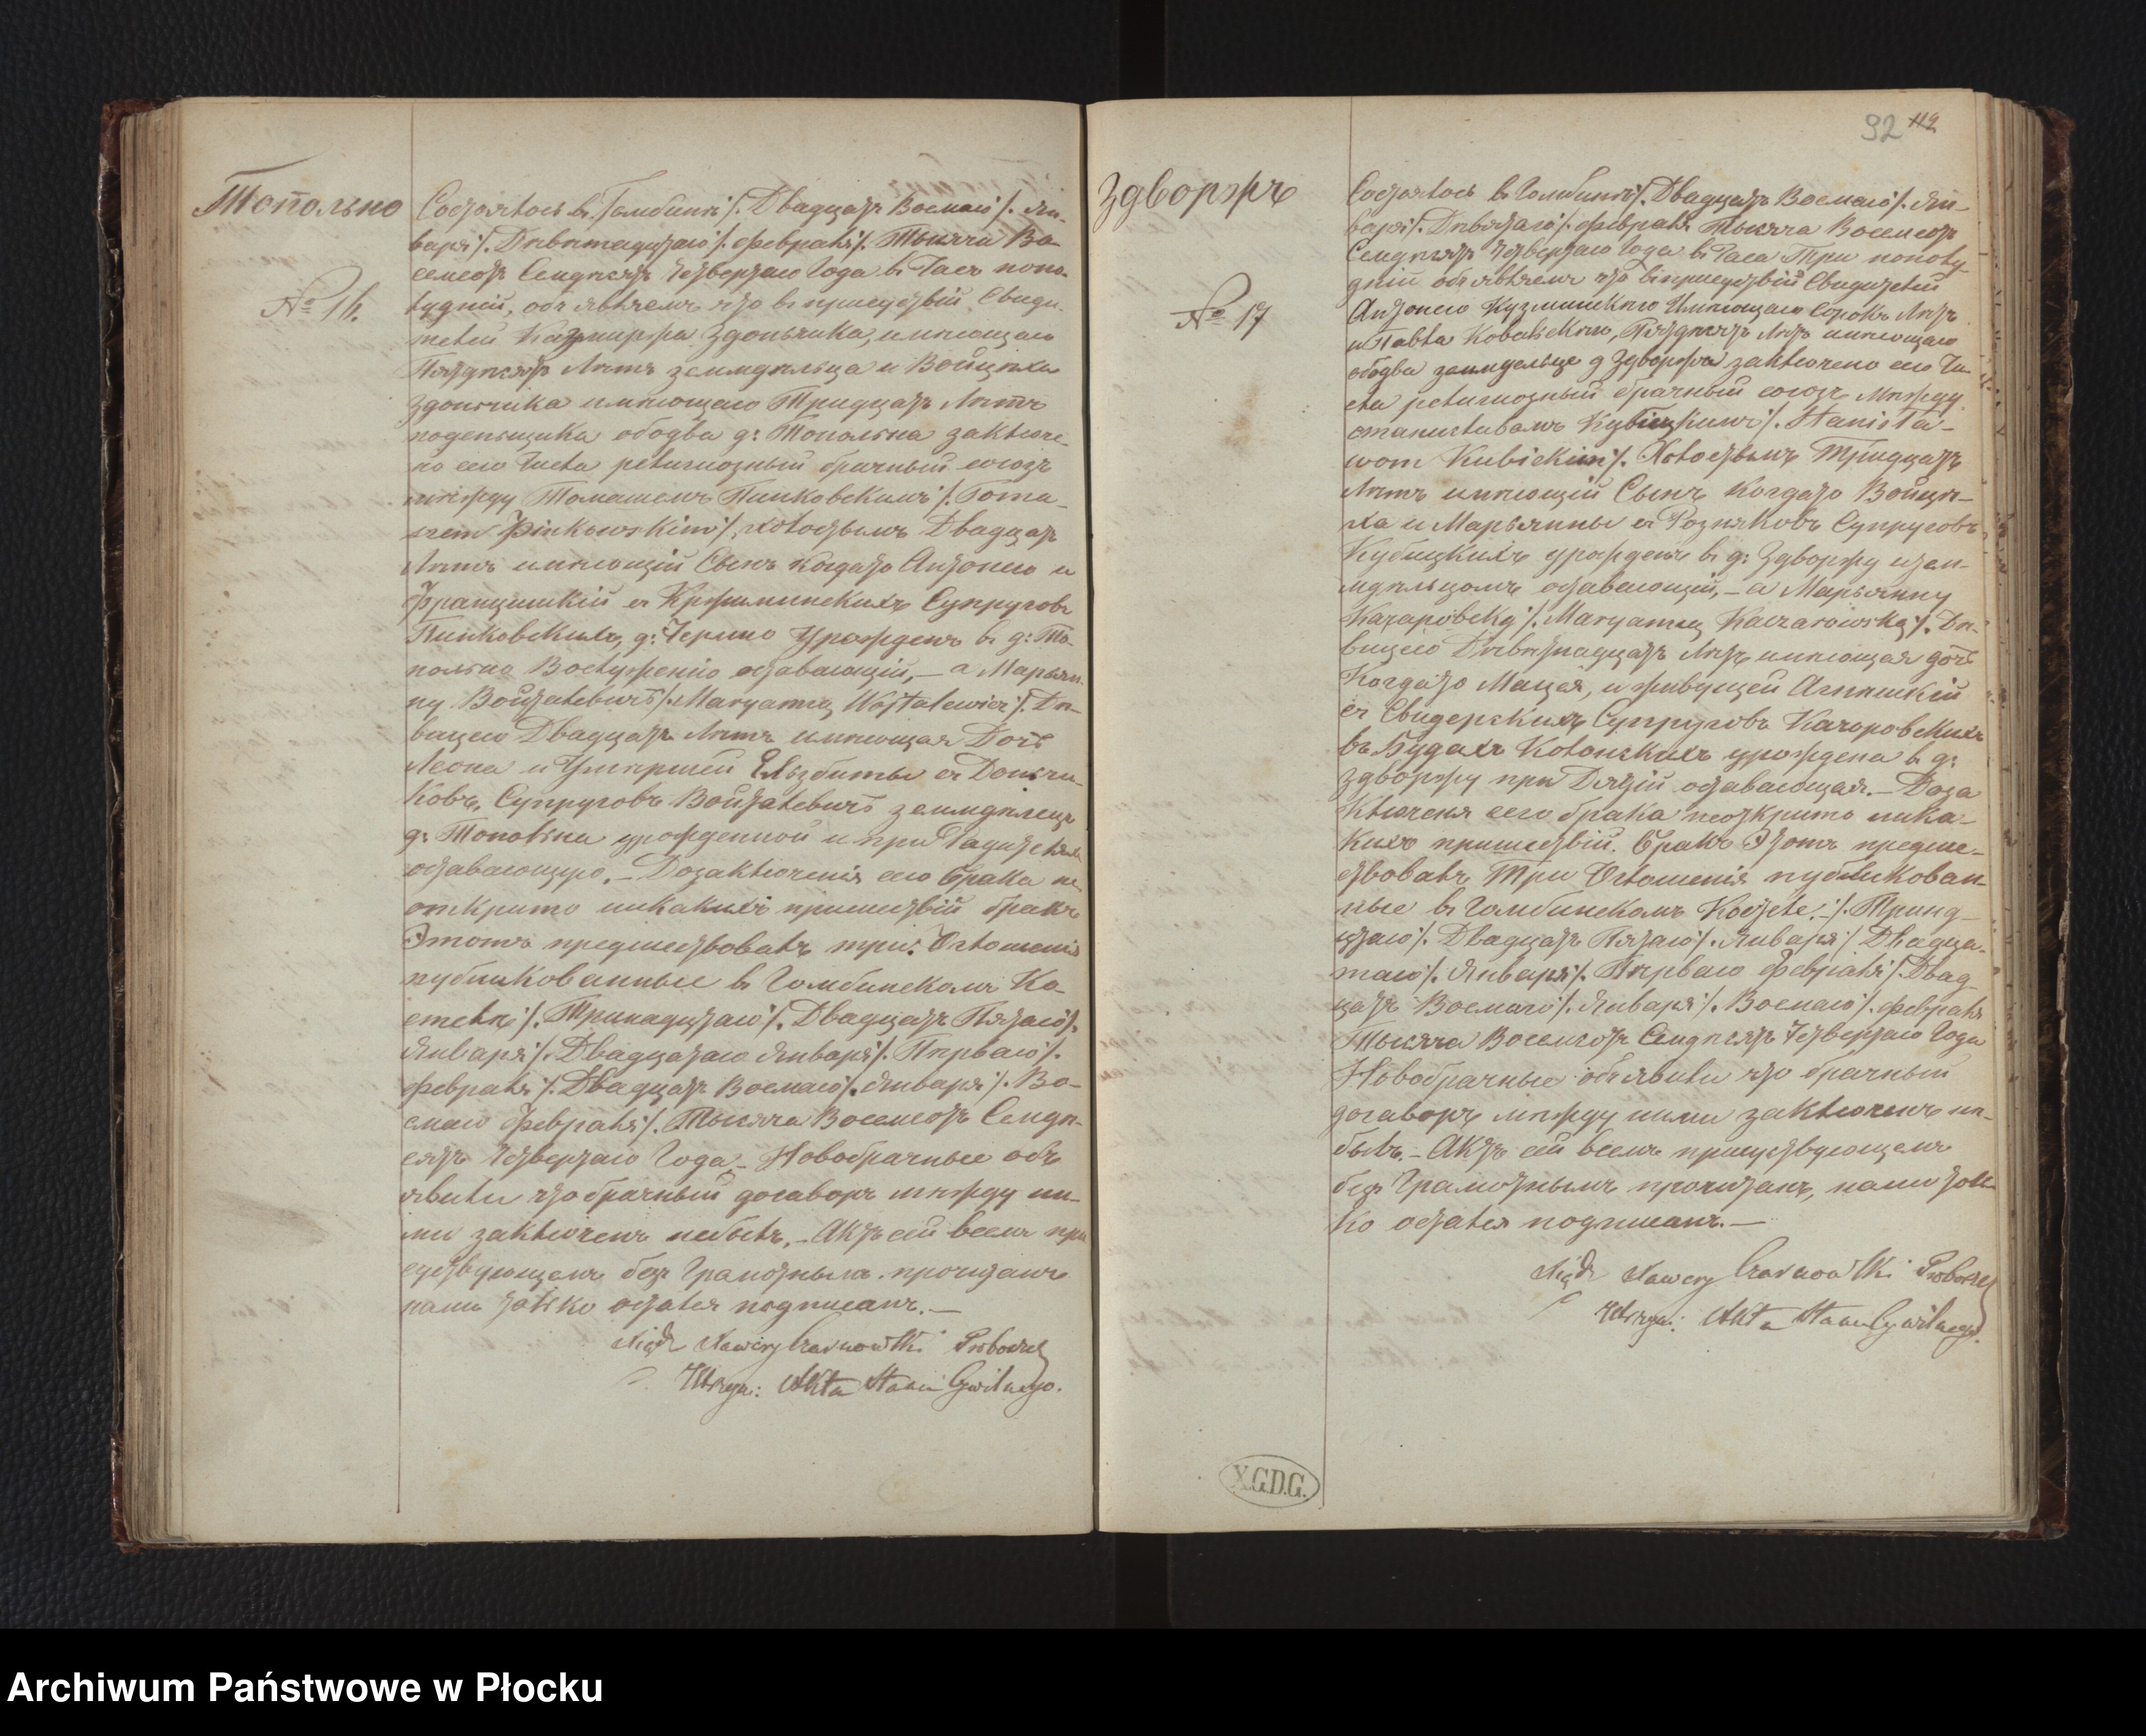 Топольно
№ 16.
Состоялось въ Гомбинѣ /. Двадцать Восмаго /. Ян-
варя /. Девятнадцтаго /. февраля /. Тысяча Во-
семсотъ Семдесятъ Четвертаго Года въ Часъ попо-
лудній, объявляемъ что въ присудствіи Свиди-
телей Казмиржа Здоньчика, имѣющаго
Пятдесятъ Лѣтъ земледѣльца и Войцѣха
Здончика имѣющаго Тридцать Лѣтъ
поденьщика обоᴅва д: Топольна заключе-
но сего Числа религиозный брачный союзъ
между Томашемъ Пинковскимъ /. Toma-
szem Pinkowskim /, холостымъ Двадцать
Лѣтъ имѣющій Сынъ Когдато Антонего и
Францишкій съ Кржиминскихъ Супруговъ
Пинковскихъ, д: Чермно Урожденъ въ д: То-
польно Вослуженію оставающій, — а Марьян-
ну Войталевичъ /. Maryanną Wojtalewicz /. Дѣ-
вицею Двадцать Лѣтъ имѣющая Дочь
Леона и Умершей Ельзбиты съ Доньчи-
ковъ, Супруговъ Войталевичъ земледѣлецъ
д: Топольна урожденной и при Родителяхъ
оставающую. — Дозаключенія сего брака не
открыто никакихъ пришедствій бракъ
Этотъ предшествовалъ три: Оглошенія
публикованные въ Гомбинскомъ Ко-
стелѣ /. Тринадцтаго /. Двадцать Пятаго /.
Января /. Двадцатаго Января /. Перваго /.
февраля /. Двадцать Восмаго /. Января /. Во-
смаго февраля /. Тысяча Восемсотъ Семде-
сятъ Четвертаго Года — Новобрачные объ
явили что брачный договоръ между ни-
ми заключенъ небылъ. — Актъ сей всемъ при
судствующемъ без Грамотнымъ прочитанъ
нами только остался подписанъ. —
Xiądz Xawery Czarnowski Proboszcz
Utrzym: Akta Stanu Cywilnego.
92 112
Здворжъ
№ 17
Состоялось въ Гомбинѣ /. Двадцать Восмаго /. Ян-
варя /. Девятаго /. февраля Тысяча Восемсотъ
Семдесятъ Четвертаго Года въ Часа Три пополу-
дніи объявляемъ что въ присудствіи Свидѣтелей
Антонего Кузминскаго Имѣющаго Сорокъ Лѣтъ
и Павла Ковальскаго, Пятдесятъ Лѣтъ имѣющаго
обоᴅва земледельце д Здворжа заключено сего Чи-
сла религиозный брачный союзъ Между
станиславомъ Кубицкимъ /. Stanisła-
wom Kubickim /. Холостымъ Тридцать
Лѣтъ имѣющій Сынъ Когдато Войцѣ-
ха и Марьянны съ Розняковъ Супруговъ
Кубицкихъ урожденъ въ д: Здворжу изем-
ледѣльцомъ оставающій, — а Марьянну
Качаровску /. Maryanną Kaczarowską /. Дѣ-
вицею Девятнадцать Лѣтъ имѣющая дочь
Когдато Мацея, и живущей Агнешкій
съ Свидерскихъ Супруговъ Качаровскихъ
въ Будахъ Колонскихъ урождена въ д:
Здворжу при Дяᴅій оставающая. — Доза
ключеня сего брака неоткрыто ника-
кихъ пришедствій. Бракъ Этотъ предше-
ствовалъ Три Оглошенія публикован-
ные въ Гомбинскомъ Костеле. — /. Тринад-
цтаго /. Двадцать Пятаго /. Января /. Двадца-
таго /. Января /. Перваго февраля /. Двад
цать Восмаго /. Января /. Восмаго /. февраля
Тысяча Восемсотъ Семдесятъ Четвертаго Года
Новобрачные объявили что брачный
договоръ между ними заключенъ не-
былъ. — Актъ сей всемъ присудствующемъ
безъ Грамотнымъ прочитанъ, нами толь-
ко остался подписанъ. —
Xiądz Xawery Czarnowski Proboszcz
Utrzym: Akta Stanu Cywilnego.
X.G.D.G.
Archiwum Państwowe w Płocku